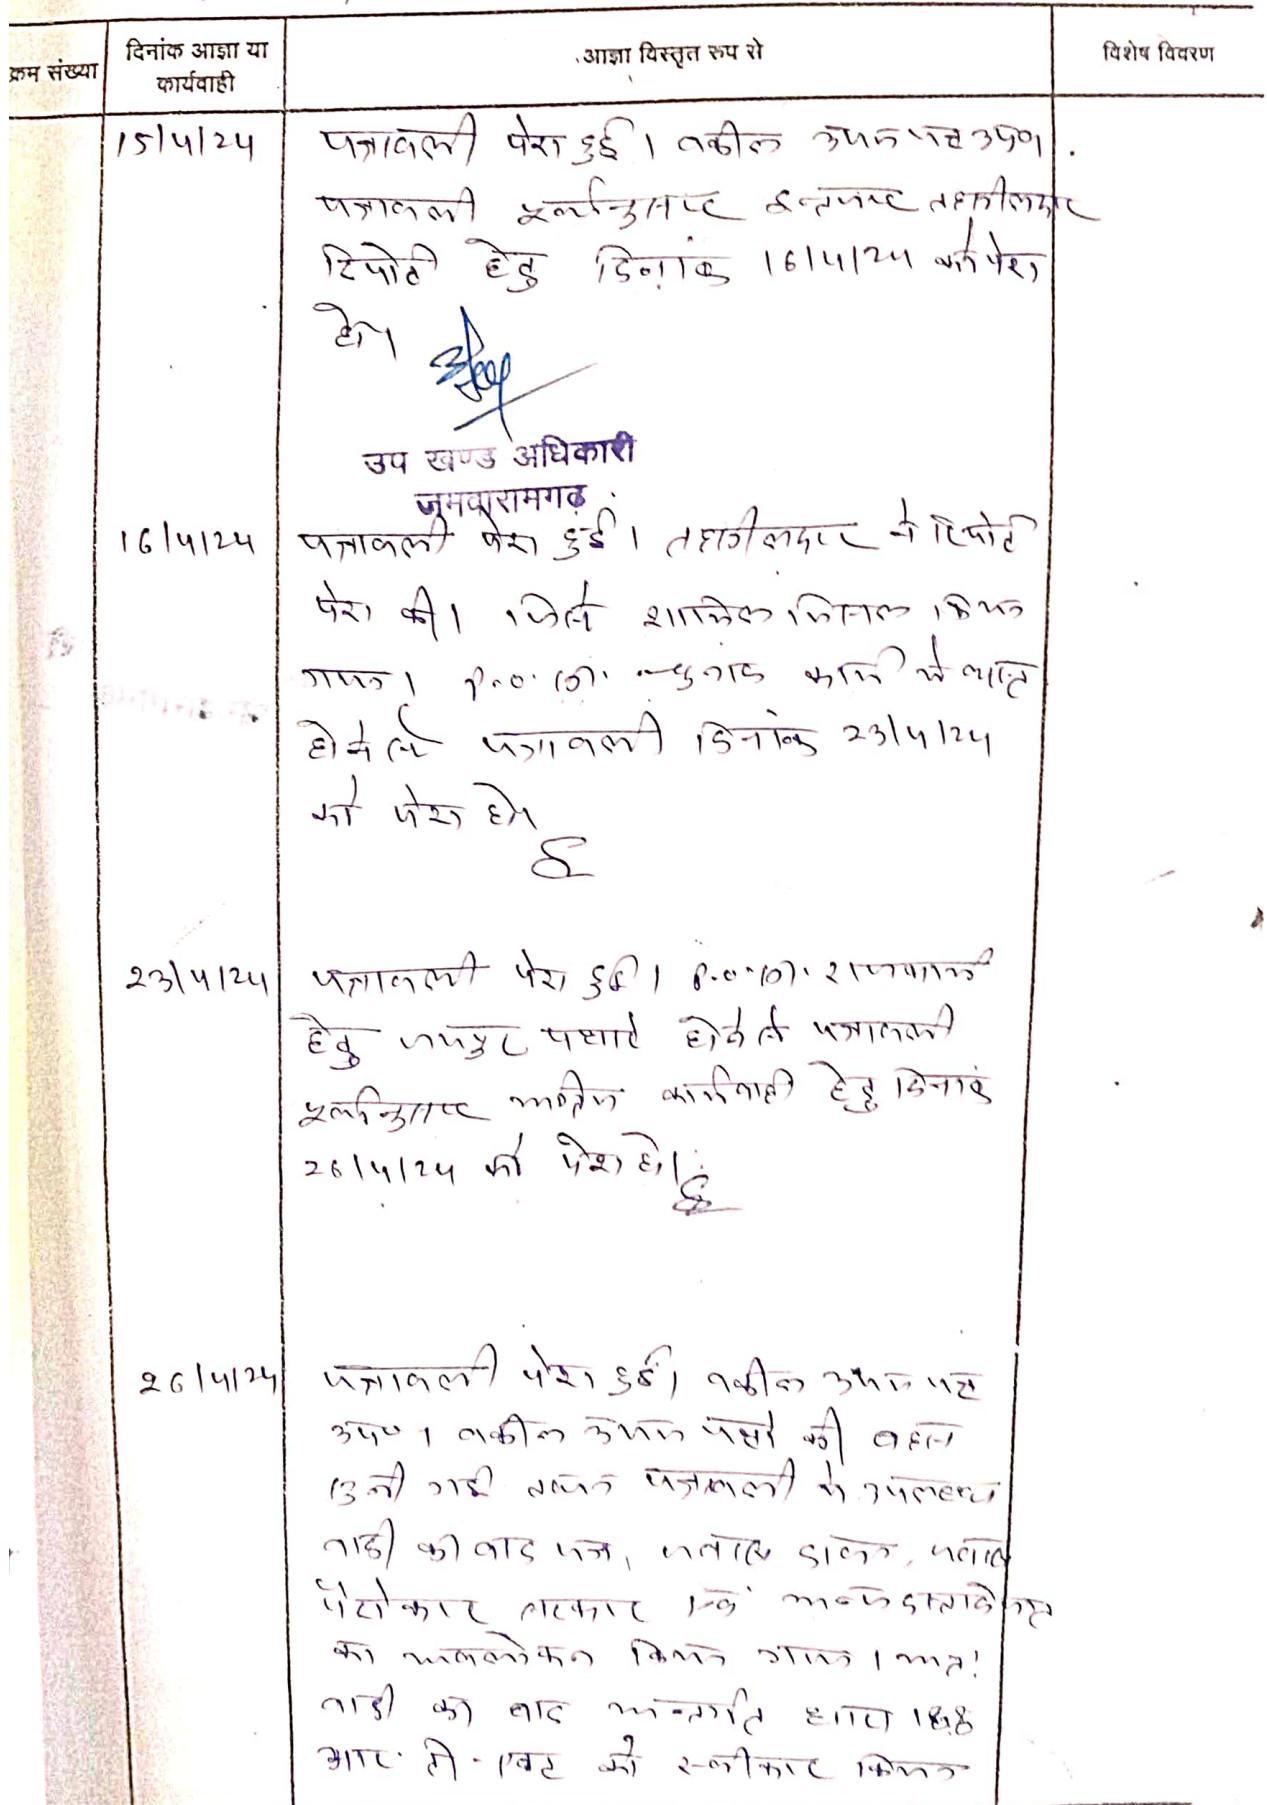 क्रम संख्या
दिनांक आज्ञा या
कार्यवाही
आज्ञा विस्तृत रुप से
विशेष विवरण
15/4/24
पत्रावली पेश हुई। वकील उभय पक्ष उप०।
पत्रावली पूर्वानुसार इन्तजार तहसीलदार
रिपोर्ट हेतु दिनांक 16/4/24 को पेश
हो।
उप खण्ड अधिकारी
जमवारामगढ़
16/4/24
पत्रावली पेश हुई। तहसीलदार ने रिपोर्ट
पेश की। जिसे शामिल मिसल किया
गया। P.O. सा. चुनाव कार्य में व्यस्त
होने से पत्रावली दिनांक 23/4/24
को पेश हो।
23/4/24
पत्रावली पेश हुई। P.O. सा. राजकार्य
हेतु जयपुर पधारे होने से पत्रावली
पूर्वानुसार अन्तिम कार्यवाही हेतु दिनांक
26/4/24 को पेश हो।
26/4/24
पत्रावली पेश हुई। वकील उभय पक्ष
उप०। वकील उभय पक्षो की बहस
सुनी गई तथा पत्रावली मे उपलब्ध
वादी का वाद पत्र, जवाब दावा, जवाब
पैरोकार सरकार एवं अन्य दस्तावेजात
का अवलोकन किया गया। अतः
वादी का वाद अन्तर्गत धारा 188
आर. टी. एक्ट को स्वीकार किया